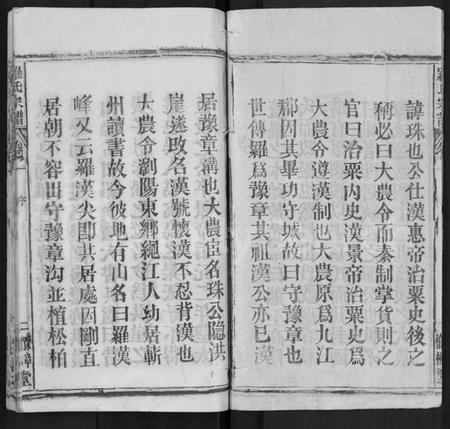 諱珠也公仕漢惠帝治粟史後之
稱必曰大農令而秦制掌貨則之
官曰治粟內史漢景帝治粟史爲
大農令遵漢制也大農原爲九江
郡因其畢功守城故曰守豫章也
世傳羅爲豫章其祖漢公亦巳漢
羅氏宗譜 卷一 序 二 豫章堂
居豫章溝也大農臣名珠公隐洪
崖遂攺名漢號懷漢不忍背漢也
大農令瀏陽東鄉繩江人幼居蘄
州讀書故今彼地有山名曰羅漢
峰又云羅漢尖即其居處因剛直
居朝不容出守豫章沟並植松柏